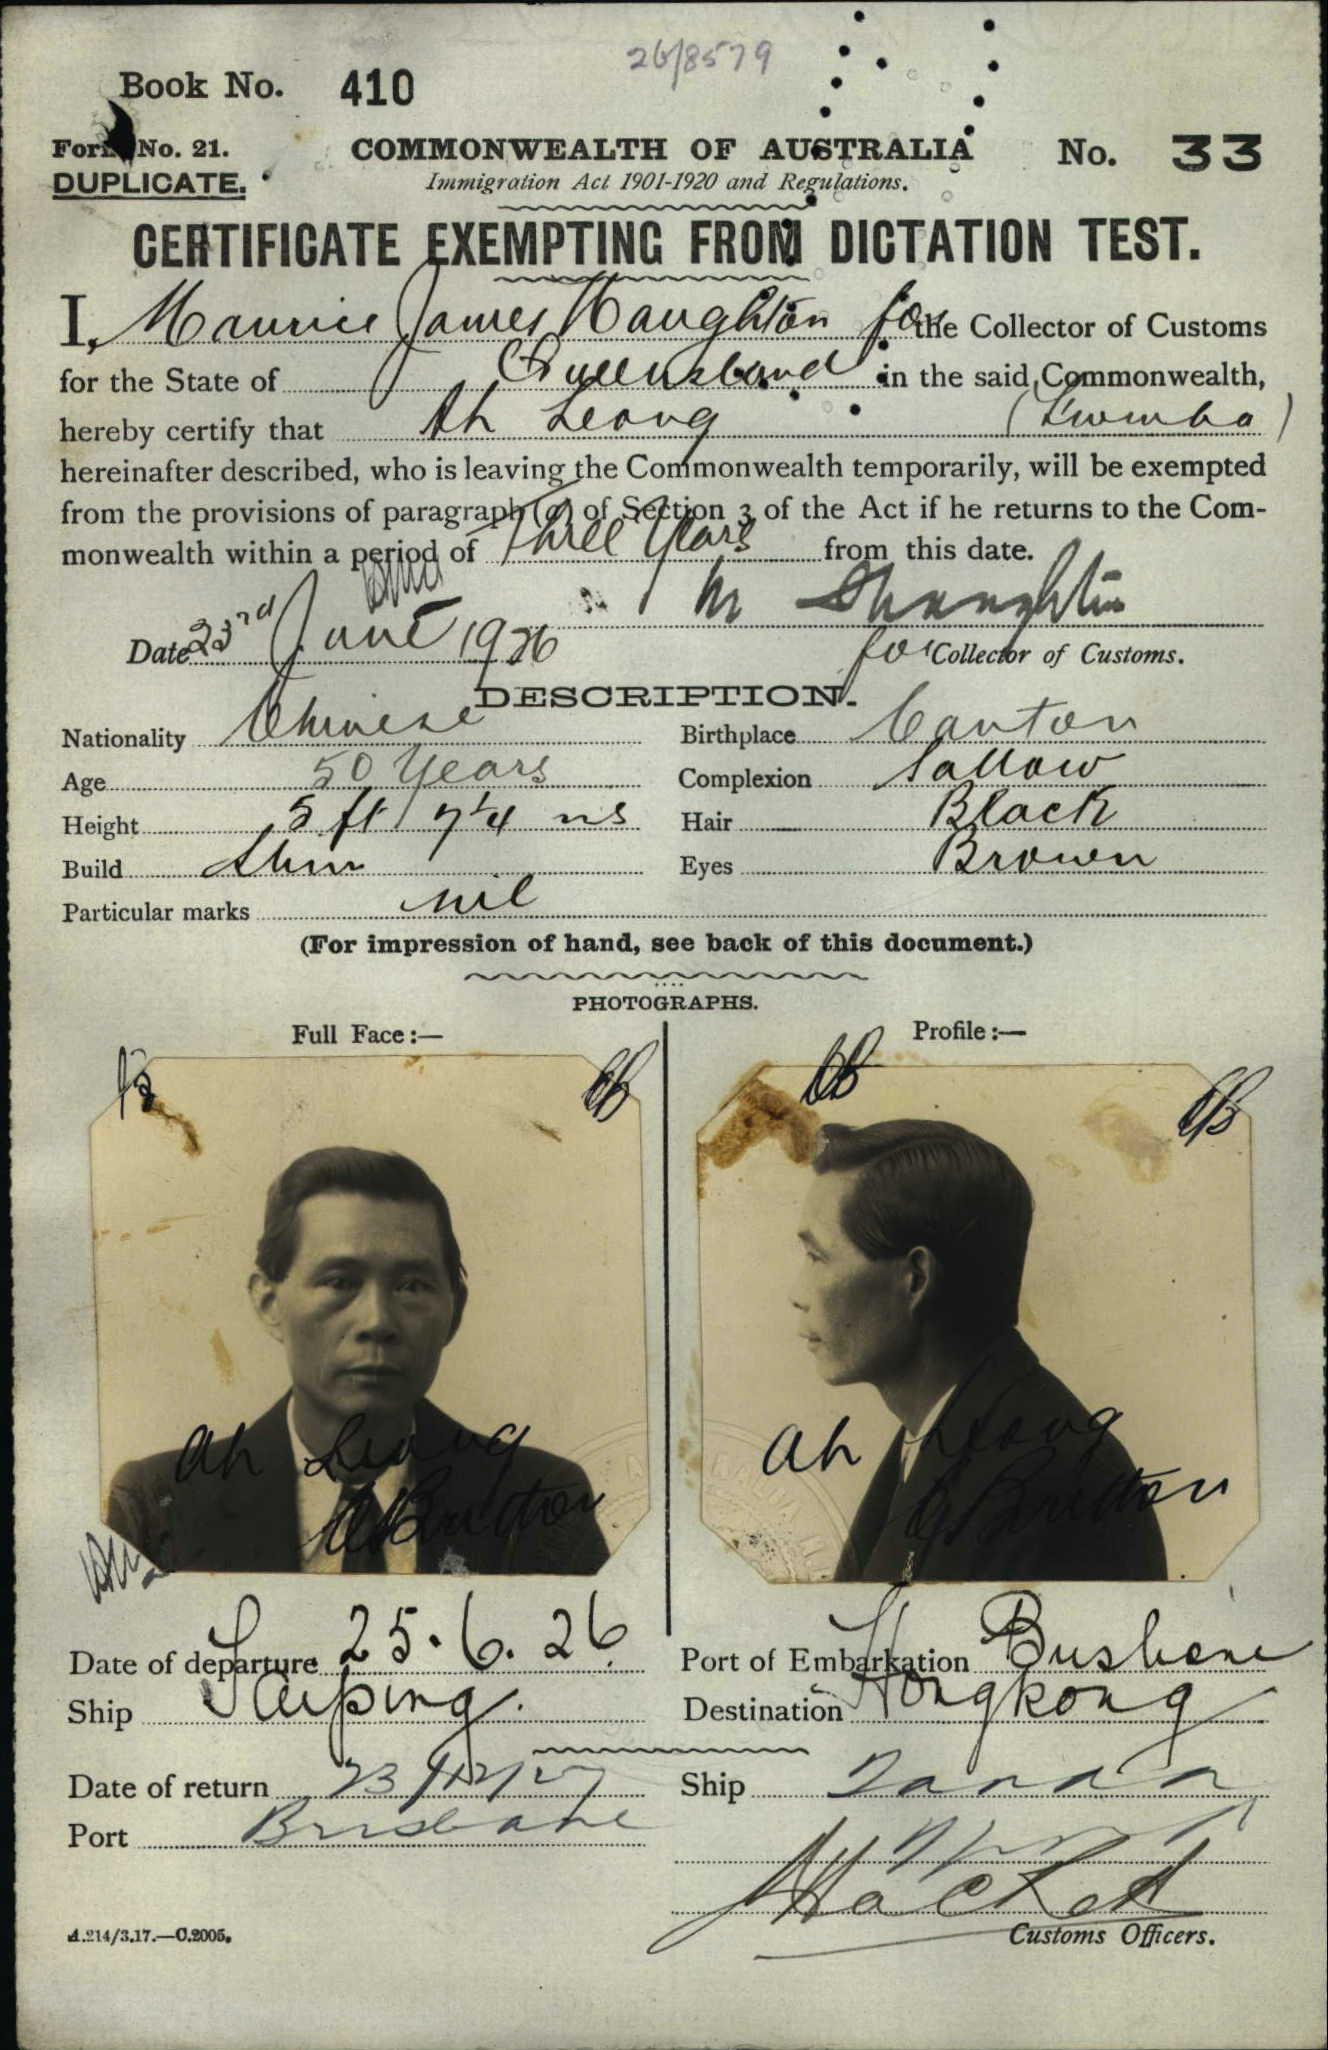 26/8579
Book No. 410
Form No. 21. COMMONWEALTH OF AUSTRALIA No. 33
DUPLICATE. Immigration Act 1901-1920 and Regulations.
CERTIFICATE EXEMPTING FROM DICTATION TEST.
I, Maurice James Haughton for the Collector of Customs
for the State of Queensland in the said Commonwealth,
hereby certify that Ah Leong
hereinafter described, who is leaving the Commonwealth temporarily, will be exempted
from the provisions of paragraph (a) of Section 3 of the Act if he returns to the Com-
monwealth within a period of Three Years from this date.
Date 23rd June 1926
for Collector of Customs.
DESCRIPTION.
Nationality Chinese Birthplace Canton
Age 50 Years Complexion Sallow
Height 5 ft 7¼ ins Hair Black
Build Slim Eyes Brown
Particular marks nil
(For impression of hand, see back of this document.)
PHOTOGRAPHS.
Full Face:— Profile:—
Ah Leong Ah Leong
Britton Britton
Date of departure 25.6.26 Port of Embarkation Brisbane
Ship Taiping. Destination Hongkong
Date of return 23/12/27 Ship Tanda
Port Brisbane
A.214/3.17.—C.2005. Customs Officers.